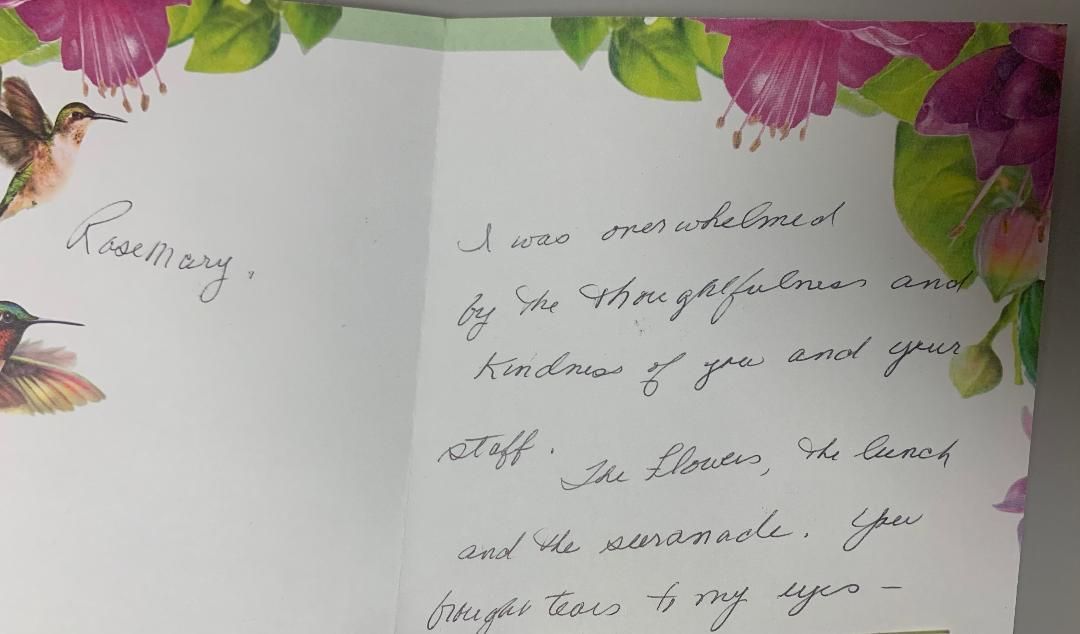 RoseMary.
I was overwhelmed
by the thoughtfulness and
Kindness of you and your
staff.
The flowers, the lunch
and the suranade. You
brought tears to my eyes –